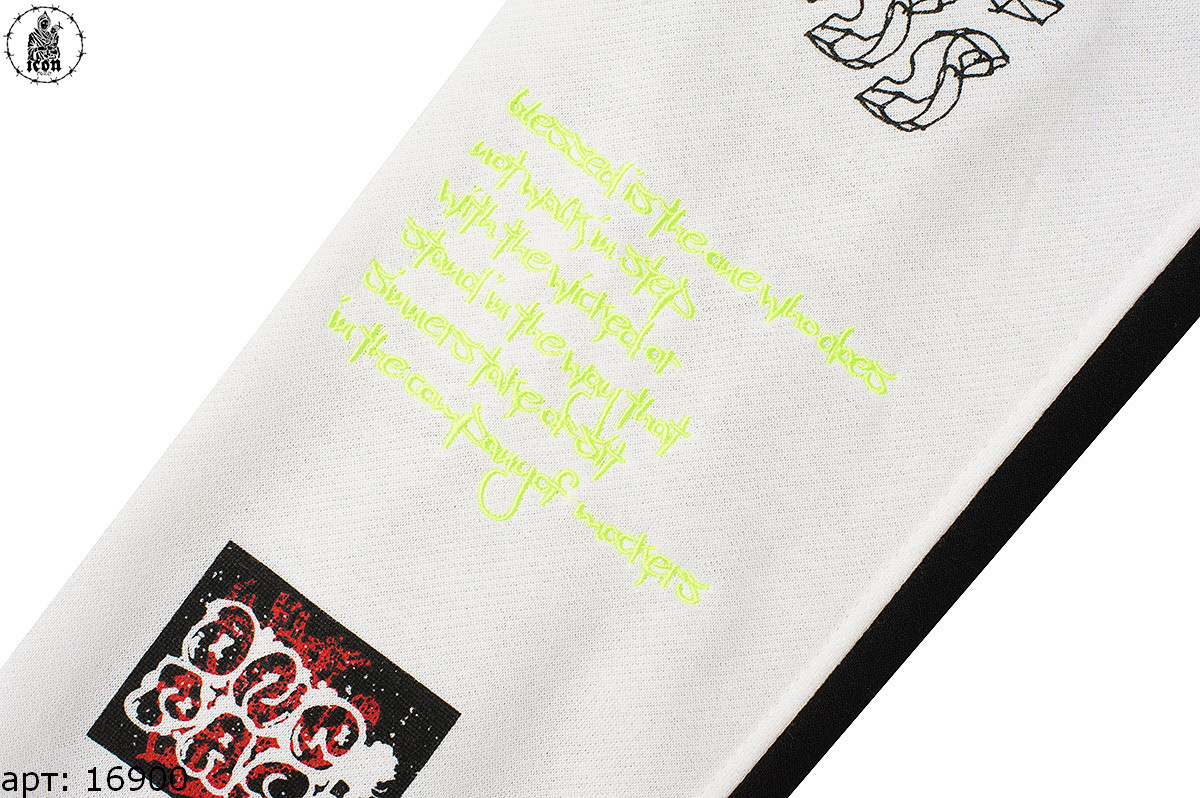 icon
SS
blessed is the one who does
not walk in step
with the wicked or
stand in the way that
sinners take or sit
in the company of mockers
арт: 16900